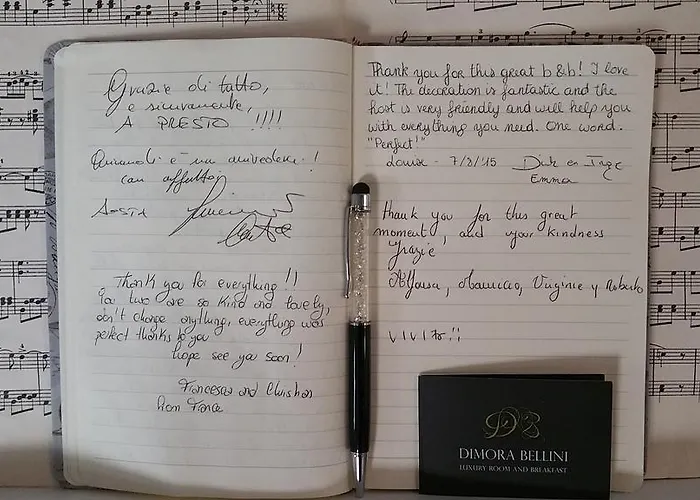 Grazie di tutto,
e sicuramente,
A PRESTO !!!!
Quindi è un arrivederci!
con affetto
AOSTA
Thank you for everything !!
You two are so kind and lovely,
don't change anything, everything was
perfect thanks to you
hope see you soon!
Francesca and Christian
from France
Thank you for this great b&b! I love
it! The decoration is fantastic and the
host is very friendly and will help you
with everything you need. One word.
"Perfect!"
Louise - 7/3/'15 Dirk en Inge
Emma
thank you for this great
moment, and your kindness
Grazie
Virginie y Roberto
DB
DIMORA BELLINI
LUXURY ROOM AND BREAKFAST